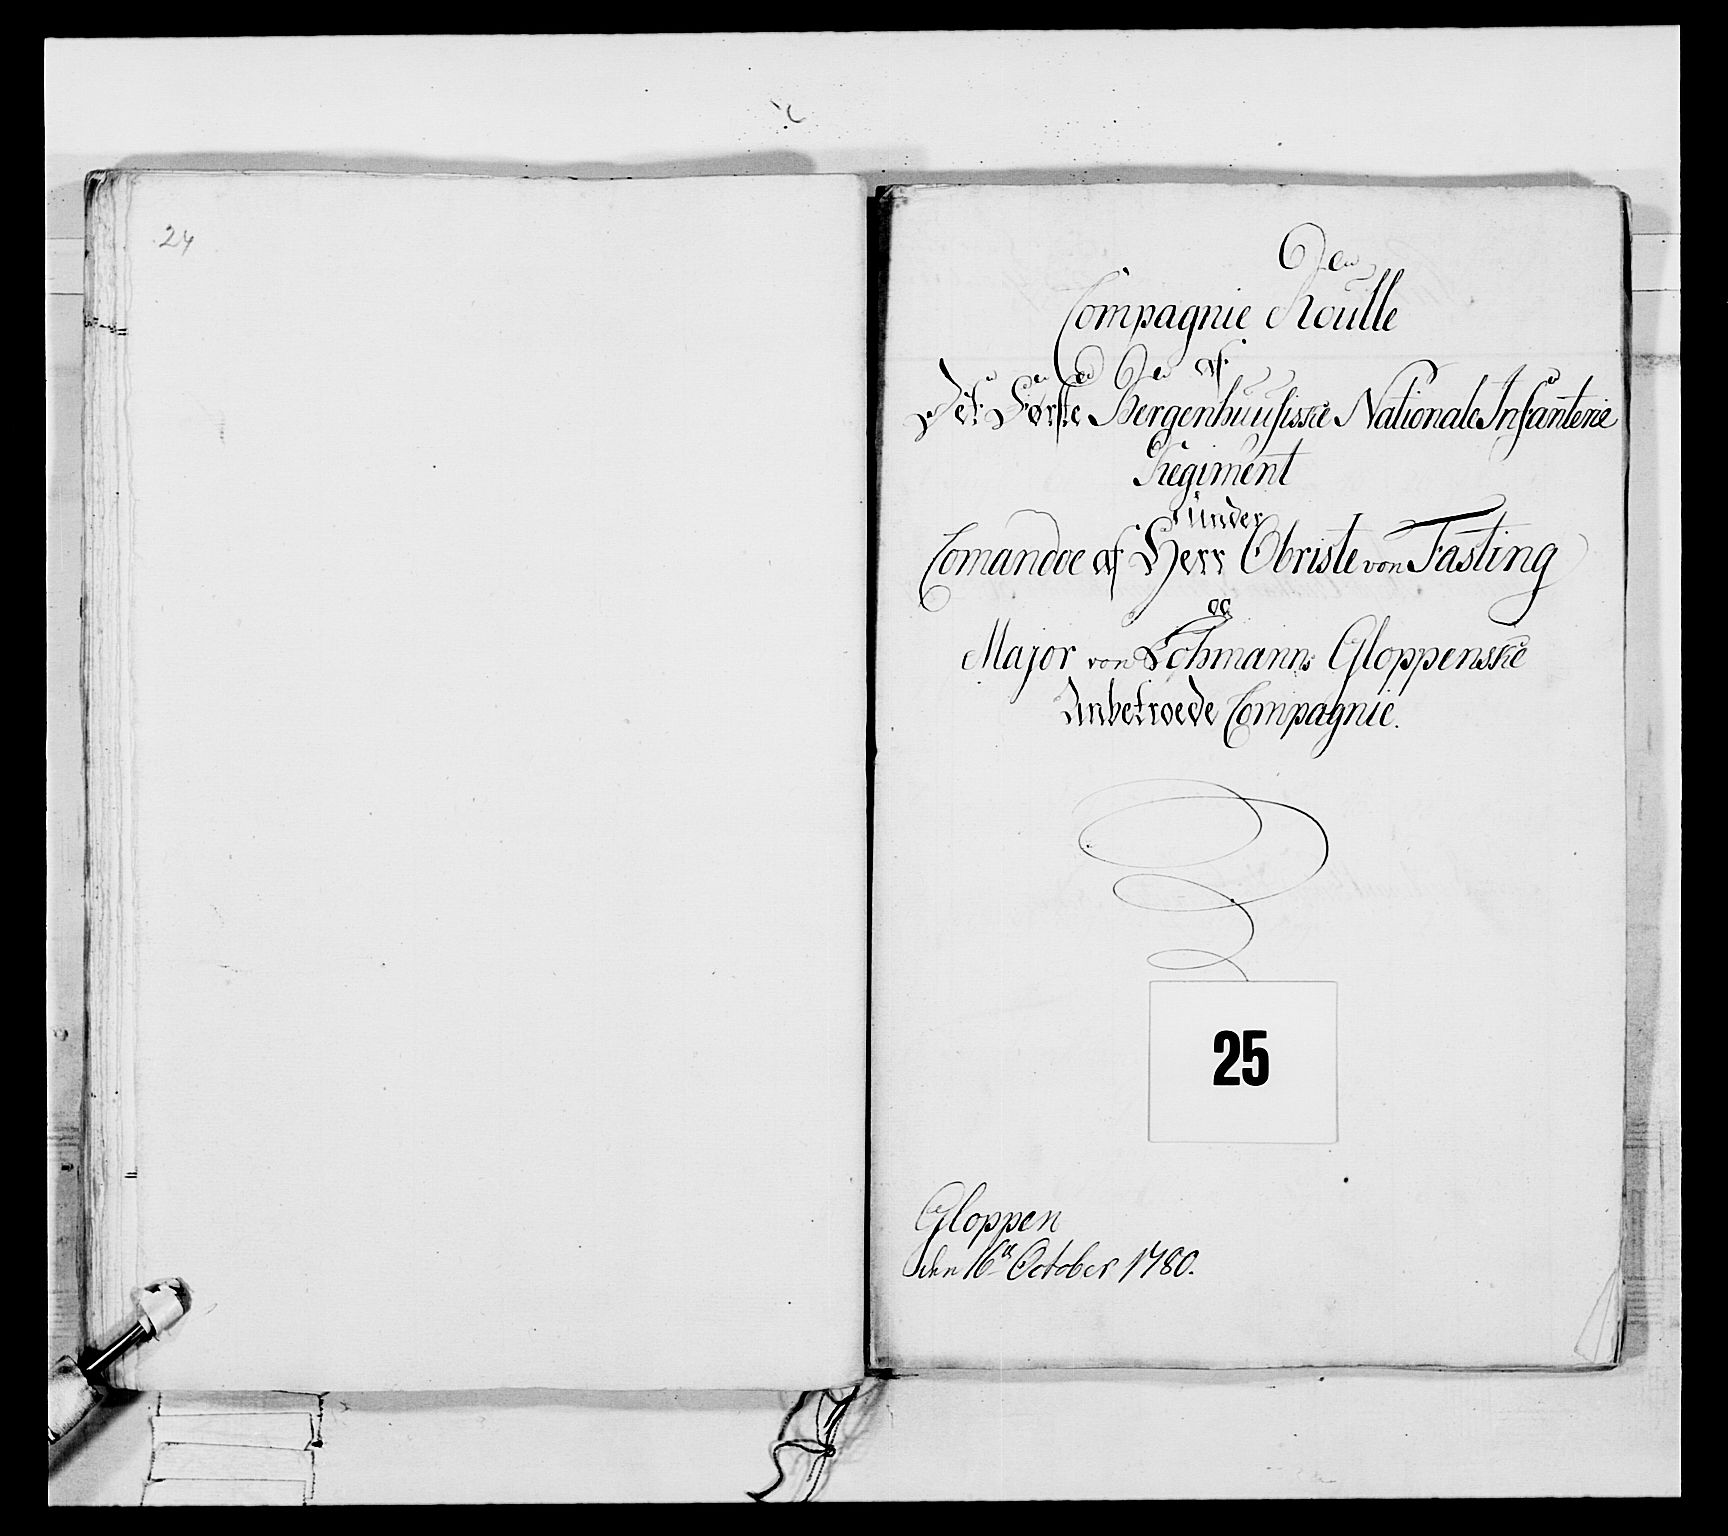 24
Den
Compagnie Roulle
af
Det Første Bergenhuusiske Nationale Infanterie
Regiment
under
Comandoe af Herr Obriste von Fasting
og
Major von Lohmanns Gloppenske
Anbetroede Compagnie.
25
Gloppen
den 16de October 1780.